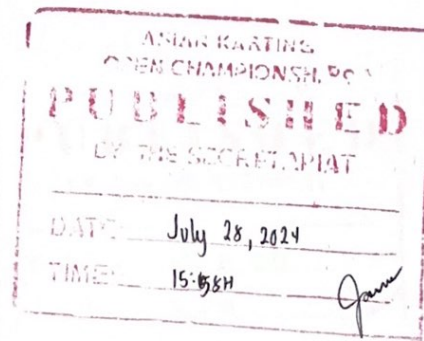 ASIAN KARTING
OPEN CHAMPIONSHIPS
PUBLISHED
BY THE SECRETARIAT
DATE: July 28, 2024
TIME: 15:58H